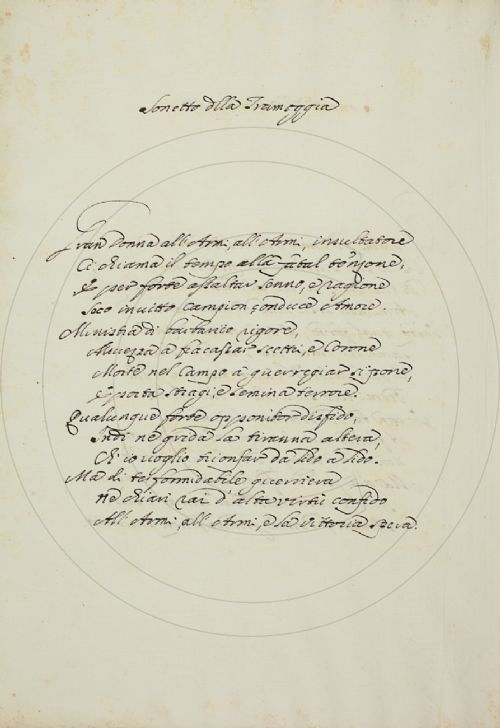 Sonetto della Trameggia
Gran Donna all'Armi, all'Armi, insultatore
Ci chiama il tempo alla fatal tenzone,
E per forte assaltar senno, e ragione
Seco invitto Campion conduce Amore.
Ministra di barbarico rigore,
Avvezza a fracassar scettri, e Corone
Morte nel Campo a guerreggiar si pone,
E porta stragi, e semina terrore.
Qualunque forte oppositor disfido,
Indi ne grida la tiranna altera,
Ch'io voglio trionfar da lido a lido.
Ma di te formidabile guerriera
ne chiari rai d'alta virtù confido
All'Armi, all'Armi, e la Vittoria spera.